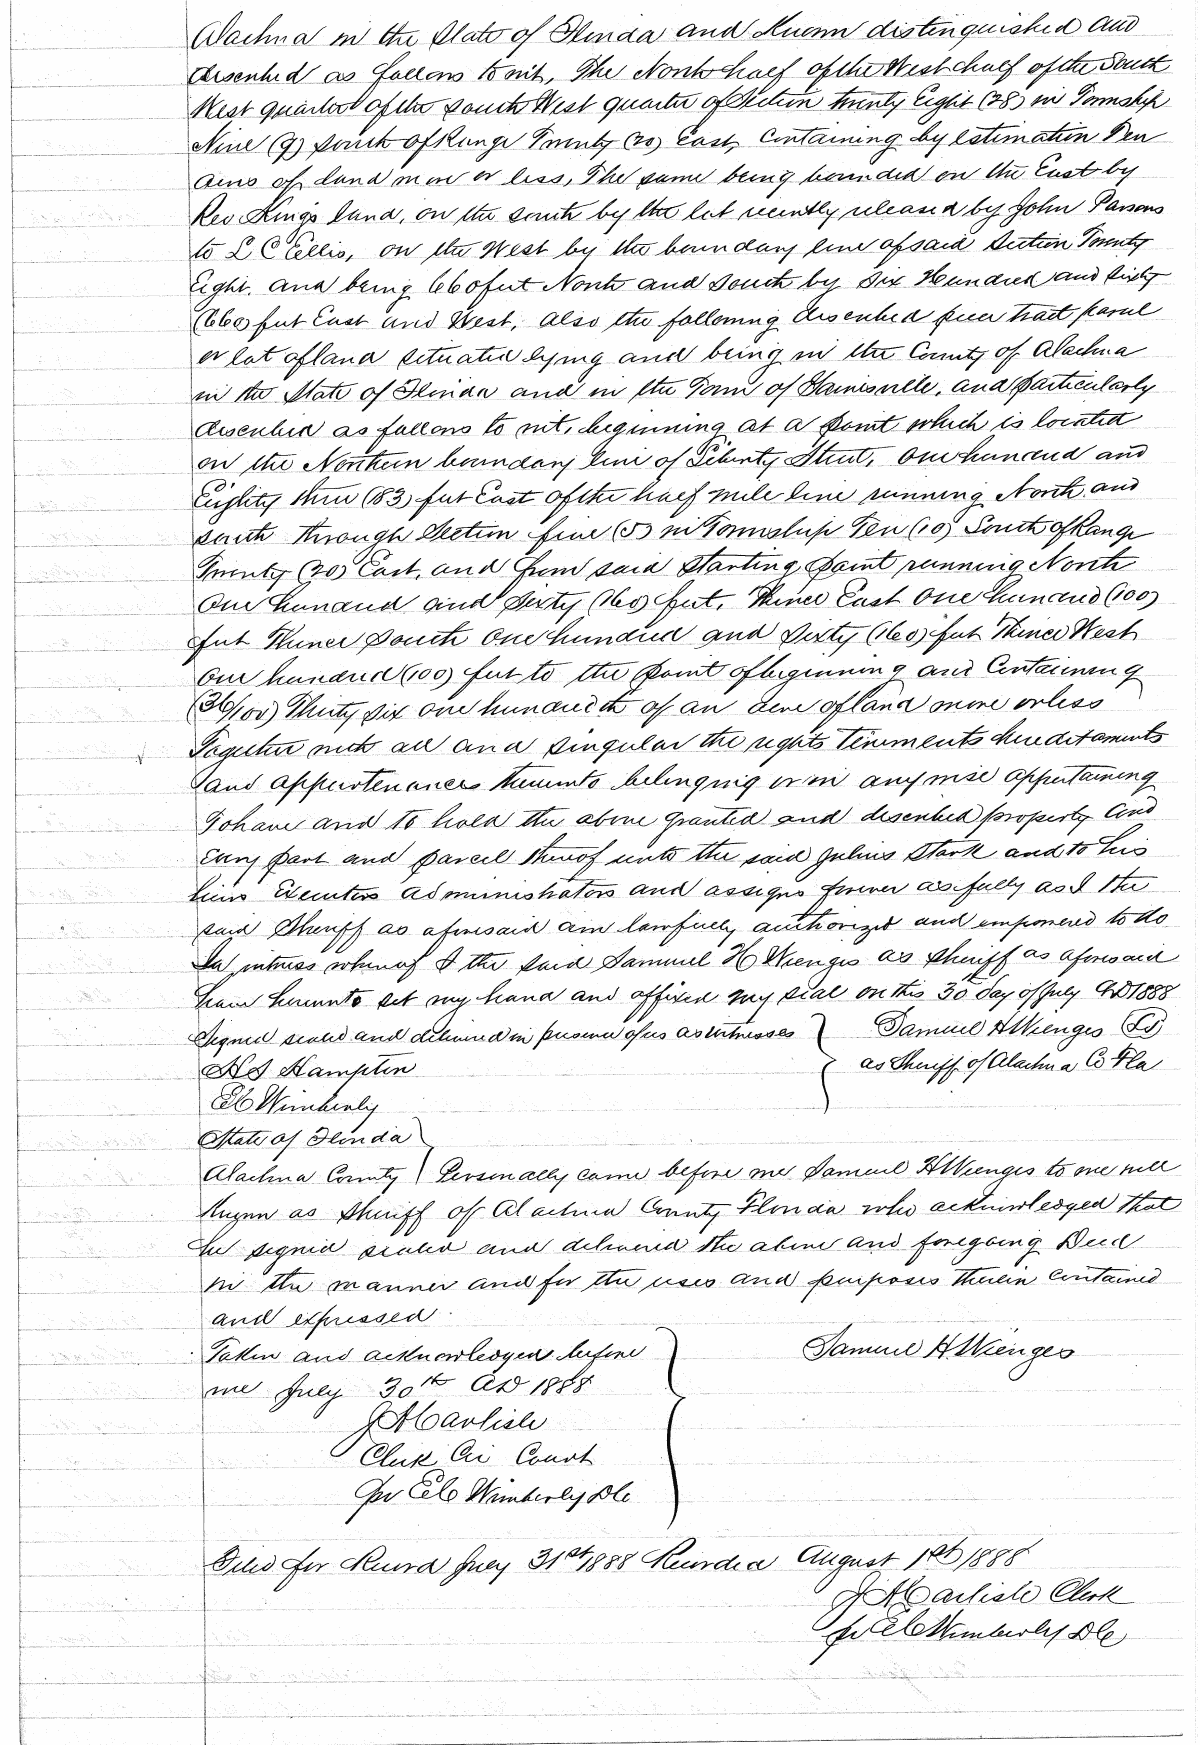 Alachua in the State of Florida and Known distinguished and
described as follows towit, The North half of the West half of the South
West quarter of the South West quarter of Section twenty Eight (28) in Township
Nine (9) South of Range Twenty (20) East, Containing by estimation Ten
acres of land more or less, The same being bounded on the East by
Rev Kings land, on the south by the lot recently released by John Parsons
to L C Ellis, on the West by the boundary line of said Section Twenty
Eight. and being 660 feet North and South by Six Hundred and Sixty
(660) feet East and West, also the following described piece tract parcel
or lot of land situated lying and being in the County of Alachua
in the State of Florida and in the Town of Gainesville, and particularly
described as follows to wit, beginning at a point which is located
on the Northern boundary line of Liberty Street, One hundred and
Eighty three (183) feet East of the half mile line running North and
south through Section five (5) in Township Ten (10) South of Range
Twenty (20) East, and from said starting point running North
One hundred and Sixty (160) feet, Thence East One hundred (100)
feet Thence South One hundred and Sixty (160) feet Thence West
One hundred (100) feet to the point of beginning and Containing
(36/100) Thirty six one hundredth of an acre of land more or less
Together with all and singular the rights Tenements hereditaments
and appurtenances thereunto belonging or in any wise appertaining
To have and to hold the above granted and described property and
every part and parcel thereof unto the said Julius Stark and to his
heirs Executors administrators and assigns forever as fully as I the
said Sheriff as aforesaid am lawfully authorized and empowered to do
In witness whereof I the said Samuel H Wienges as Sheriff as aforesaid
have hereunto set my hand and affixed my seal on this 30 day of July AD 1888
Signed sealed and delivered in presence of us as witnesses } Samuel H Wienges (LS)
Hampton } as Sheriff of Alachua Co Fla
Wimberly
State of Florida
Alachua County } Personally came before me Samuel H Wienges to me well
Known as Sheriff of Alachua County Florida who acknowledged that
he signed sealed and delivered the above and foregoing Deed
in the manner and for the uses and purposes therein contained
and expressed
Taken and acknowledged before } Samuel H. Wienges
me July 30th AD 1888
J A Carlisle
Clerk Cir Court
Per Wimberly DC
Filed for Record July 31st 1888 Recorded August 1st 1888
J A Carlisle Clerk
Per Wimberly DC